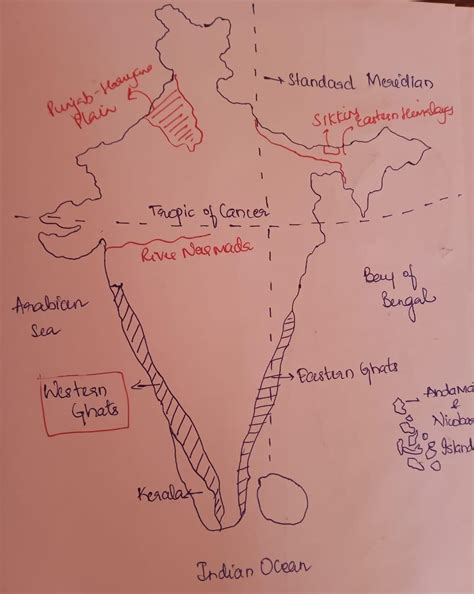 Standard Meridian
Punjab-Haryana
Plain
Sikkim
Eastern Himalayas
Tropic of Cancer
River Narmada
Arabian
Sea
Bay of
Bengal
Western
Ghats
Eastern Ghats
Andama
&
Nicobar
Island
Kerala
Indian Ocean